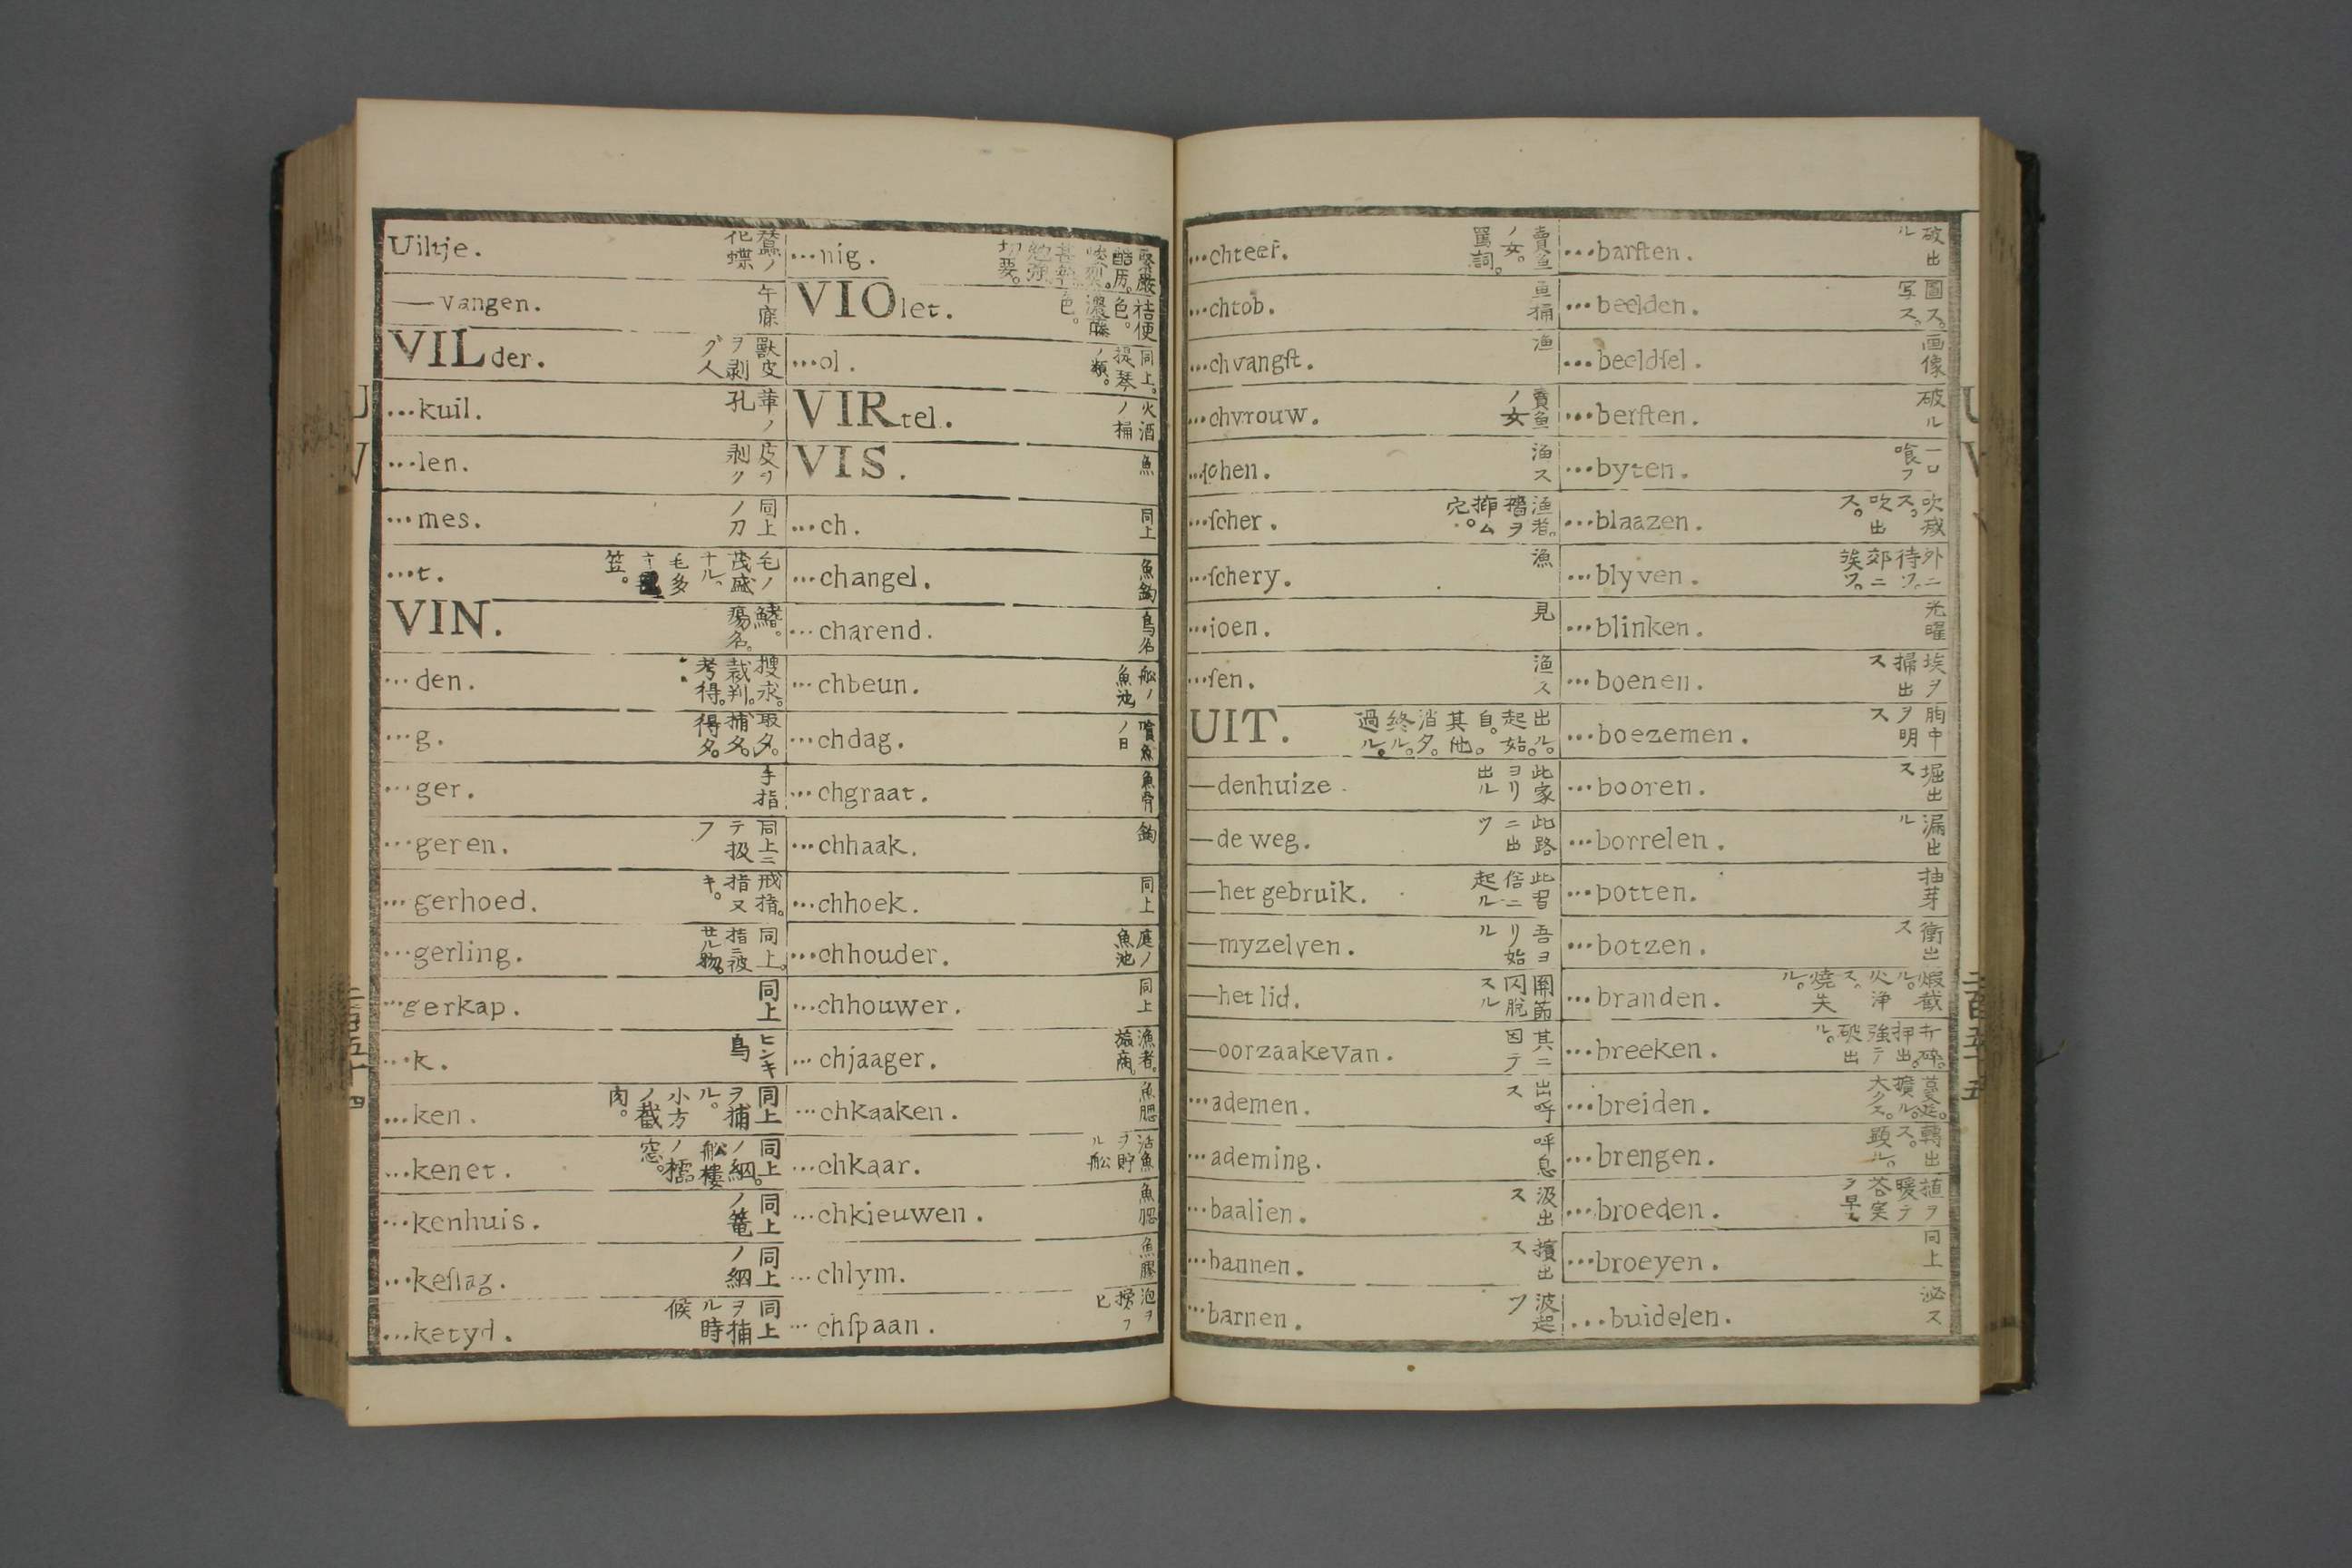 Uiltje. 蠶ノ化蝶
—vangen. 午寐
VILder. 獸皮ヲ剥グ人
...kuil. 革ノ孔
...len. 皮ヲ剥ク
...mes. 同上ノ刀
...t. 毛ノ茂盛ナル。毛多 笠。
VIN. 鰭。瘍名。
...den. 捜求。裁判。考得。
...g. 取タ。捕タ。得タ。
...ger. 手指
...geren. 同上ニテ扱フ
...gerhoed. 戒指。指又キ。
...gerling. 同上。指ニ被セル物。
...gerkap. 同上
...k. ヒンキ鳥
...ken. 同上ヲ捕ル。小方ノ截肉。
...kenet. 同上ノ網。舩樓ノ櫺窓。
...kenhuis. 同上ノ篭
...keſlag. 同上ノ網
...ketyd. 同上ヲ捕ル時候
...nig. 堅嚴 酷厉。峻烈。甚 切要。
VIOlet. 桔梗色。濃藤色。
...ol. 同上。提琴ノ類。
VIRtel. 火酒ノ桶
VIS. 魚
...ch. 同上
...changel. 魚鈎
...charend. 鳥名
...chbeun. 舩ノ魚池
...chdag. 喰魚ノ日
...chgraat. 魚骨
...chhaak. 鈎
...chhoek. 同上
...chhouder. 庭ノ魚池
...chhouwer. 同上
...chjaager. 漁者。旅商。
...chkaaken. 魚腮
...chkaar. 活魚ヲ貯ル舩
...chkieuwen. 魚腮
...chlym. 魚膠
...chſpaan. 泡ヲ撈フヒ
...chteef. 賣魚ノ女。罵詞。
...chtob. 魚桶
...chvangſt. 漁
...chvrouw. 賣魚ノ女
...ſchen. 漁ス
...ſcher. 漁者。
...ſchery. 漁
...ioen. 見
...ſen. 漁ス
UIT. 出ル。起始。自。其他。消タ。終ル。過ル。
—denhuize. 此家ヨリ出ル
—de weg. 此路ニ出ツ
—het gebruik. 此習俗ニ起ル
—myzelven. 吾ヨリ始ル
—het lid. 関節囟脱スル
—oorzaakevan. 其ニ因テ
...ademen. 出呼ス
...ademing. 呼息
...baalien. 汲出ス
...bannen. 擯出ス
...barnen. 波起ツ
...barſten. 破出ル
...beelden. 圖ス。写ス。
...beeldſel. 画像
...berſten. 破ル
...byten. 一口喰フ
...blaazen. 吹滅ス。吹出ス。
...blyven. 外ニ待ツ。郊ニ俟ツ。
...blinken. 光曜
...boenen. 埃ヲ掃出ス
...boezemen. 胸中ヲ明ス
...booren. 堀出ス
...borrelen. 漏出ル
...botten. 抽芽
...botzen. 衝出ス
...branden. 煆截ル。火浄ス。燒失ル。
...breeken. 打碎。押出。強テ破出ル。
...breiden. 蔓延。擴ル。大クス。
...brengen. 轉出ス。顕ル。
...broeden. 植ヲ暖テ
...broeyen. 同上
...buidelen. 泌ス